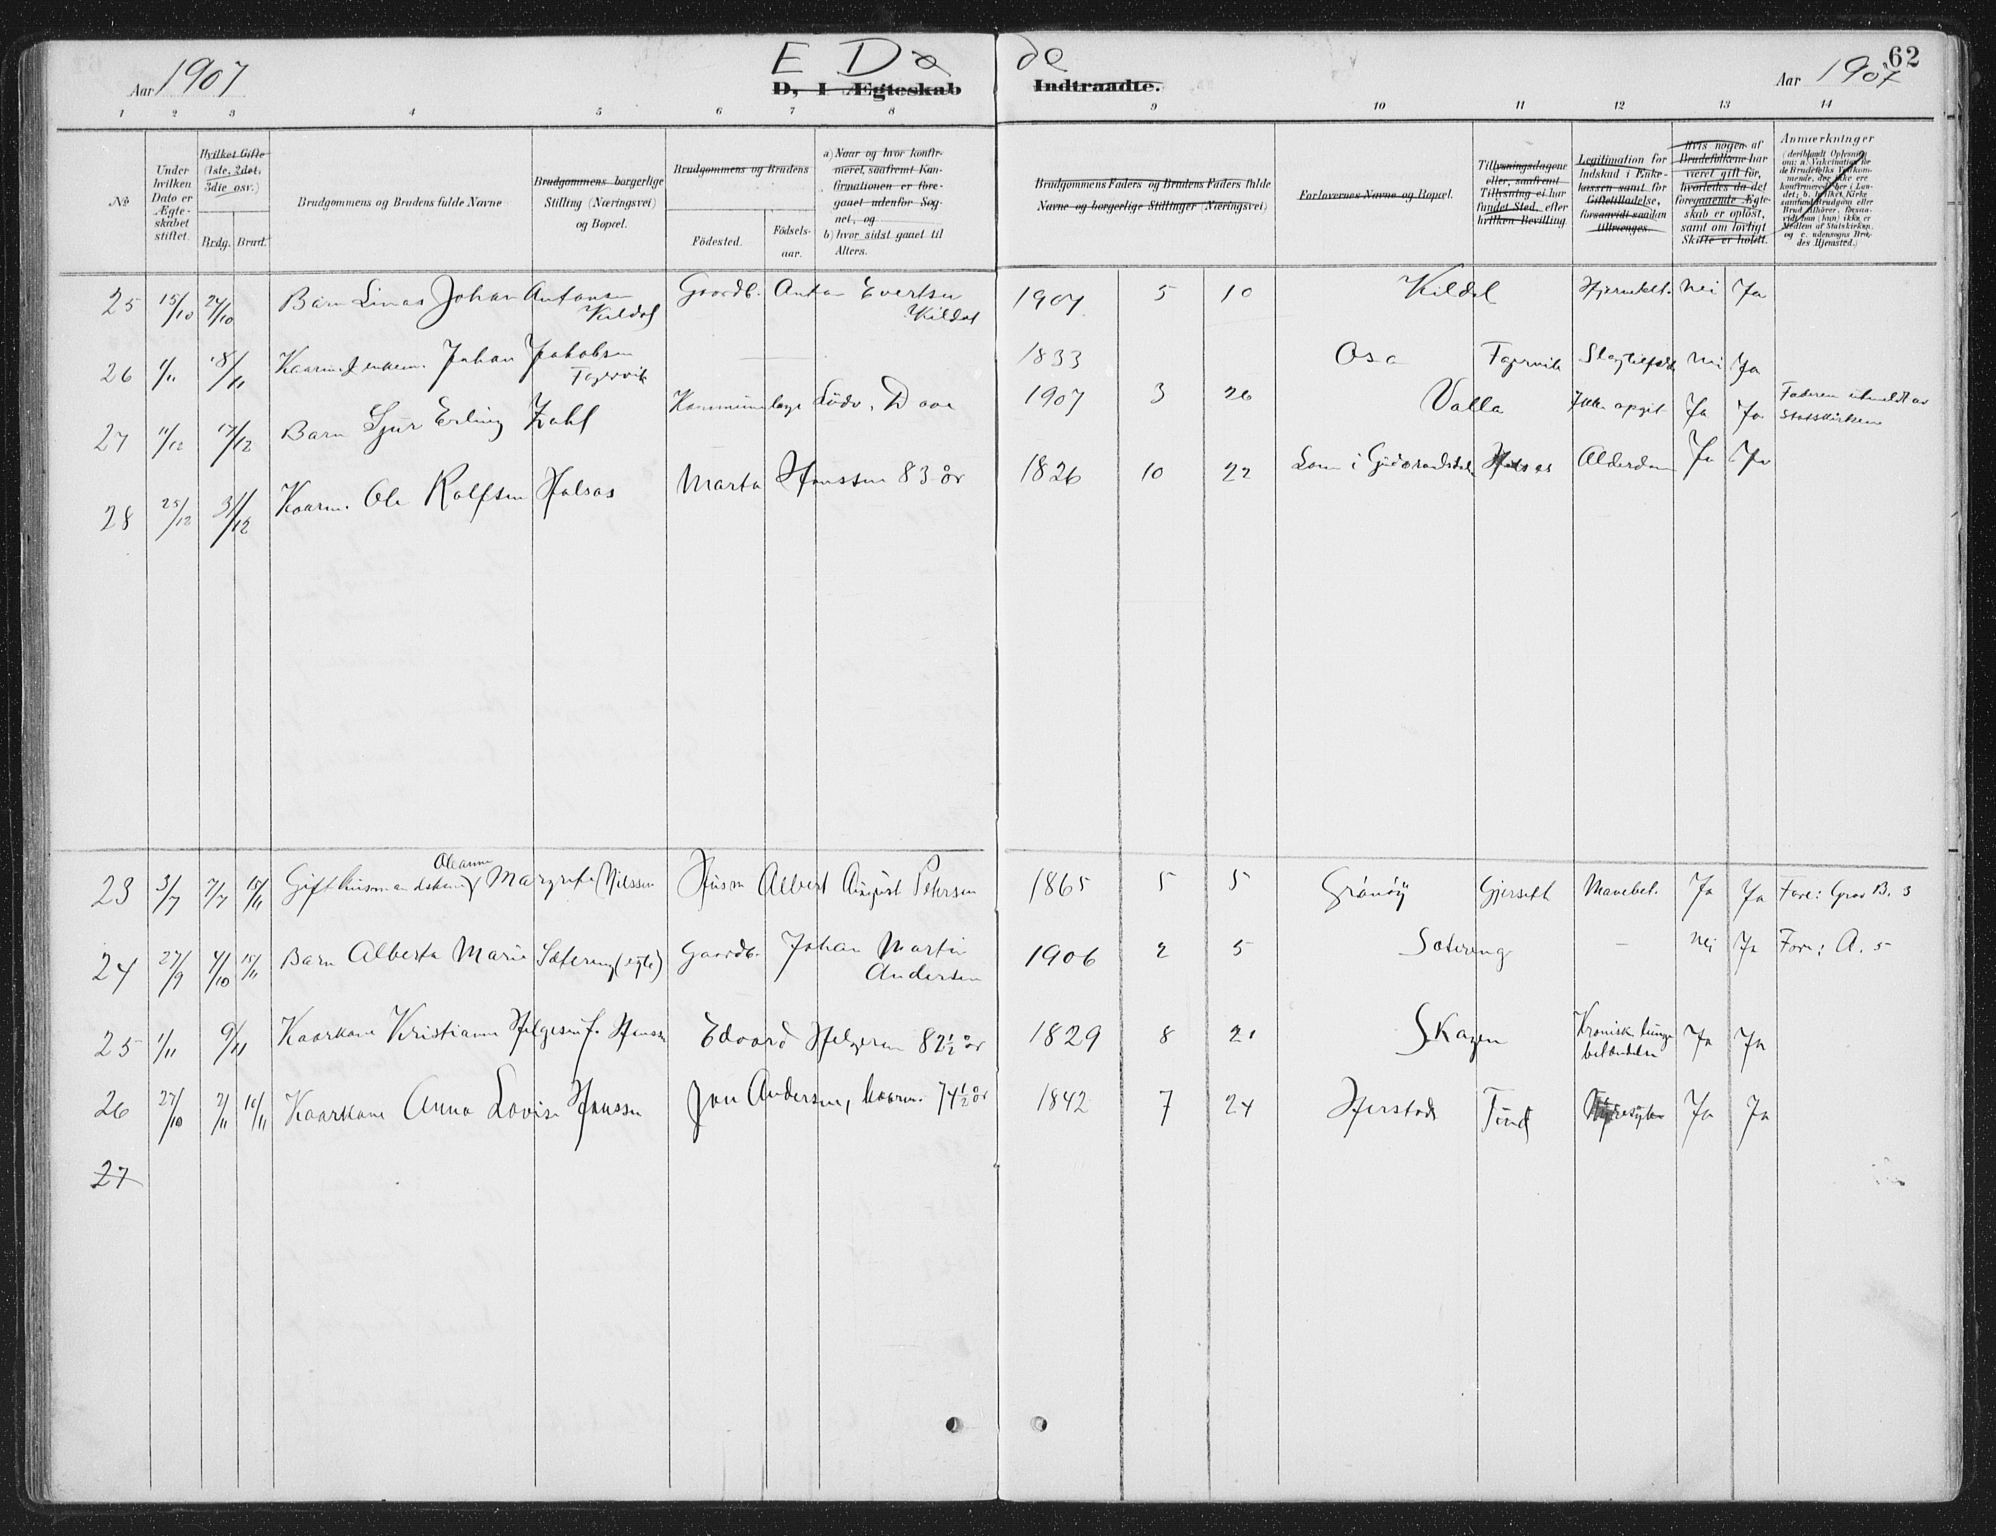 62
Aar 1907
E Dø
de
Aar 1907
D, I Ægteskab
Indtraadte.
1 2 3 4 5 6 7 8 9 10 11 12 13 14
No
Under hvilken Dato er Ægteskabet stiftet.
Hvilket Gifte (1ste, 2det, 3die osv.)
Brdg. Brud.
Brudgommens og Brudens fulde Navne
Brudgommens borgerlige Stilling (Næringsvei) og Bopæl.
Brudgommens og Brudens
Födested.
Födselsaar.
a) Naar og hvor konfirmeret, saafremt Konfirmationen er foregaaet udenfor Sognet, og
b) hvor sidst gaaet til Alters.
Brudgommens Faders og Brudens Faders fulde Navne og borgerlige Stillinger (Næringsvei)
Forlovernes Navne og Bopæl.
Tillysningsdagene eller, saafremt Tillysning ei har fundet Sted, efter hvilken Bevilling
Legitimation for Indskud i Enkekassen samt for Giftetilladelse, forsaavidt saadan tiltrænges.
Hvis nogen af Brudefolkene har været gift för, hvorledes da det foregaaende Ægteskab er oplöst, samt om lovligt Skifte er holdt.
Anmærkninger
25 15/10 24/10 Barn Linas Johan Antonsen Kildal Gaardb. Anton Evertsen Kildal 1907 5 10 Kildal Hjernebet. Nei Ja
26 1/11 18/11 Johan Jakobsen Fagervik 1833 Osa Fagervik Slagtilfælde Nei Ja
27 11/12 17/12 Barn Sjur Erling Zahl Ludv. Daae 1907 3 26 Valla Ikke opgit Ja Ja Faderen utmeldt av Statskirken
28 25/12 31/12 Kaarm. Ole Rolfsen Halsås Marta Hanssen 83 år 1826 10 22 Lom i Gudbrandsdalen Halsås Alderdom Ja Ja
23 3/7 7/7 15/11 Gift husmandskone Oleanne Margrete Nilssen Husm Albert August Petersen 1865 5 5 Grönöy Gjersett Mavebet. Ja Ja Fore: Grav B. 3
24 27/9 4/10 15/11 Barn Alberta Marie Sætereng (egte) Gaardb. Johan Martin Andersen 1906 2 5 Sætereng — Nei Ja Fore: A. 5
25 1/11 9/11 Kaarkone Kristianne Helgesen f. Hanssen Edvard Helgesen 82½ år 1829 8 21 Skagen Kronisk lungebetændelse Ja Ja
26 27/10 2/11 16/11 Kaarkone Anna Lovise Hanssen Jon Andersen, kaarm. 74½ år 1842 7 24 Herstad Ja Ja
27